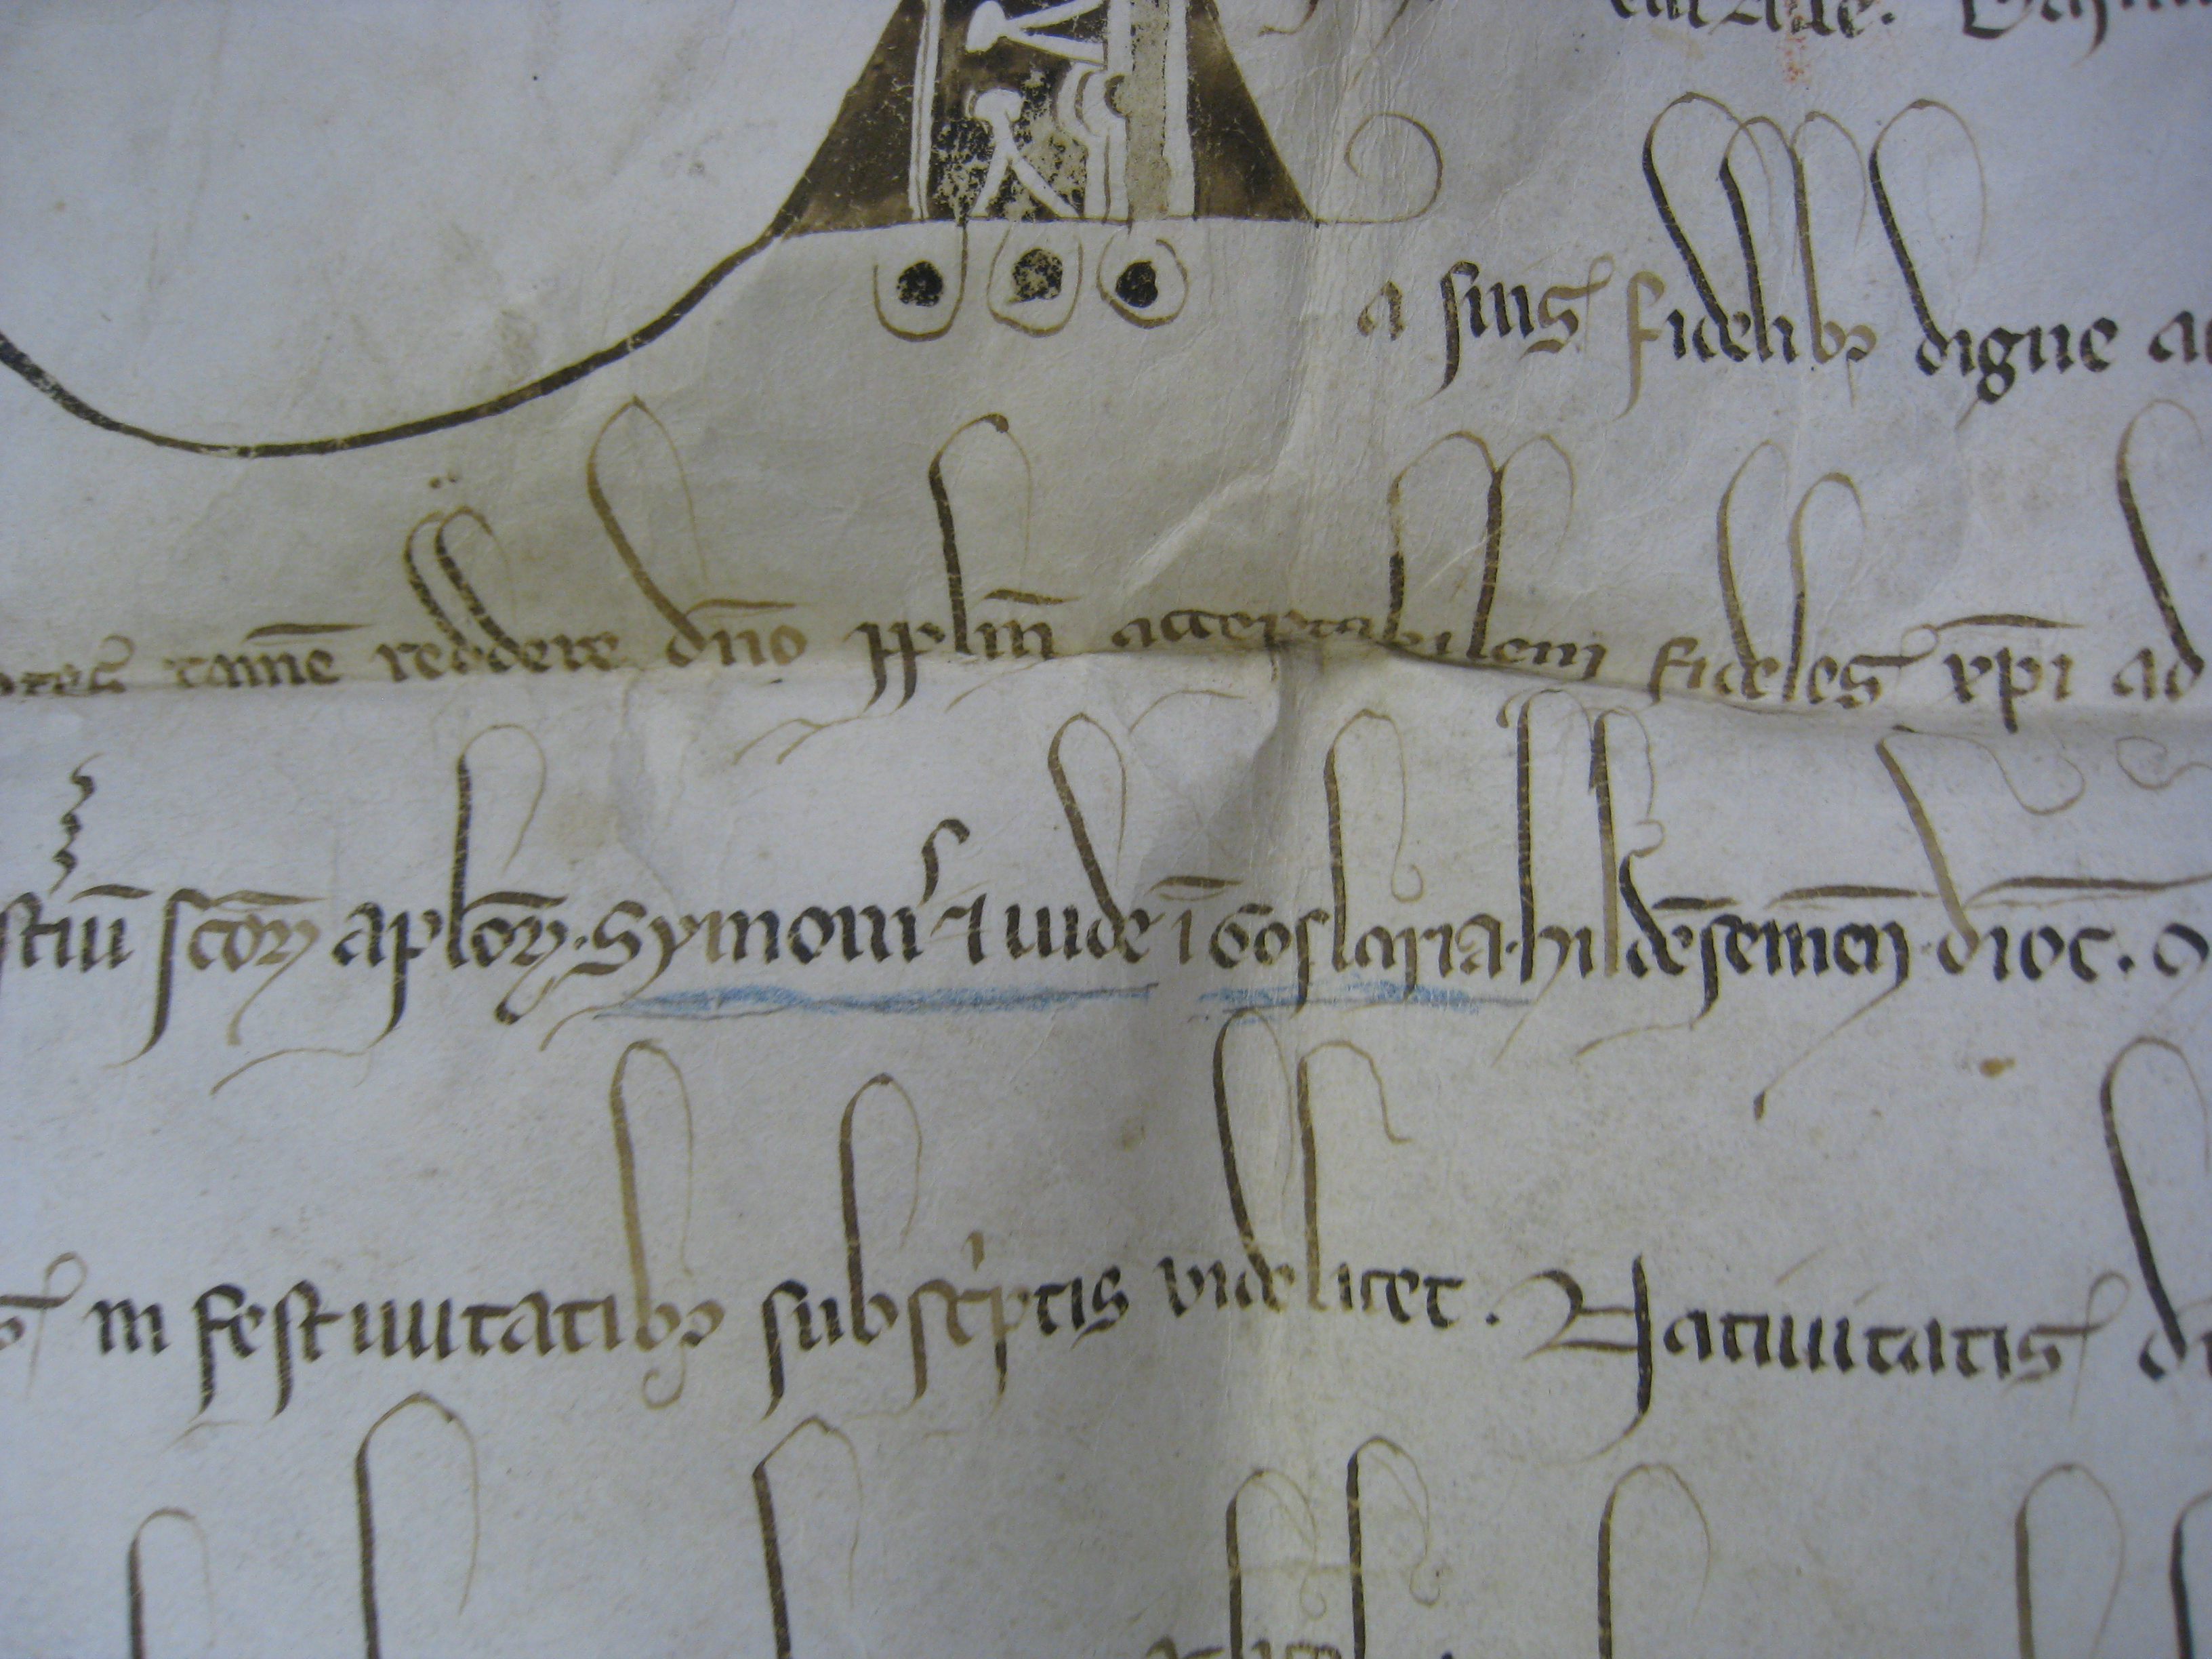 a suis fidelibꝫ digne
tamē reddere dn̄o ꝑplm̄ acceptabilem fideles xp̄i ad
scōꝝ aplōꝝ. Symonis ⁊ iude ī Goslaria. hildēsemēn dioc̄.
in festiuitatibꝫ subscⁱptis videlicet. Natiuitatis